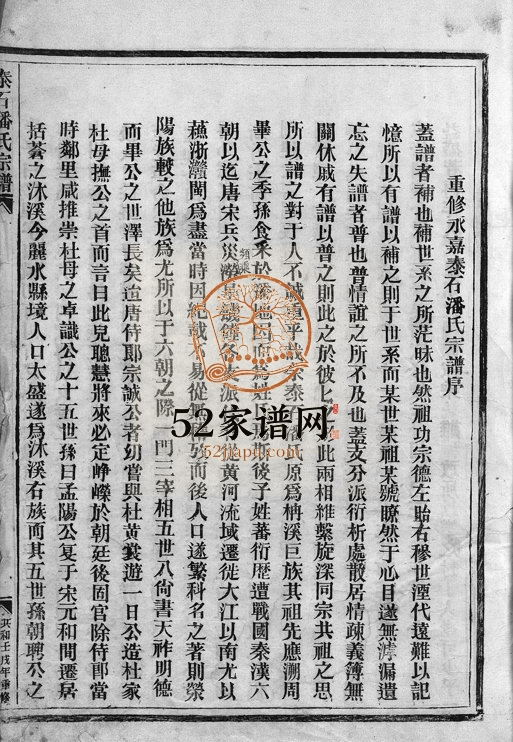 重修永嘉泰石潘氏宗譜序
蓋譜者補也補世系之所茫昧也然祖功宗德左貽右穆世湮代遠難以記
憶所以有譜以補之則于世系而某世某祖某號瞭然于心目遂無漏遺
忘之失譜者普也普情誼之所不及也蓋支分派衍析處散居情疎義簿無
關休戚有譜以普之則此之於彼 此兩相維繫旋深同宗共祖之思
所以譜之對于人不誠重乎哉 泰 原為柟溪巨族其祖先應溯周
畢公之季孫食采於潘地因而為姓 後子姓蕃衍歷遭戰國秦漢六
朝以迄唐宋兵災 各支派 從黃河流域遷徙大江以南尤以
蘇浙贛閩為盡當時因紀載不易從 攷而後人口遂繁科名之著則滎
陽族較之他族為尤所以于六朝之際一門三宰相五世八尙書天祚明德
而畢公之世澤長矣迨唐侍郎宗誠公者幼嘗與杜黃裳遊一日公造杜家
杜母撫公之首而言曰此兒聰慧將來必定崢嶸於朝廷後固官除侍郎當
時鄰里咸推崇杜母之卓識公之十五世孫曰孟陽公复于宋元和間遷居
括蒼之沐溪今麗水縣境人口太盛遂為沐溪右族而其五世孫朝聘公之
泰石潘氏宗譜
共和壬戌年重修
52家谱网
52jiapu.com